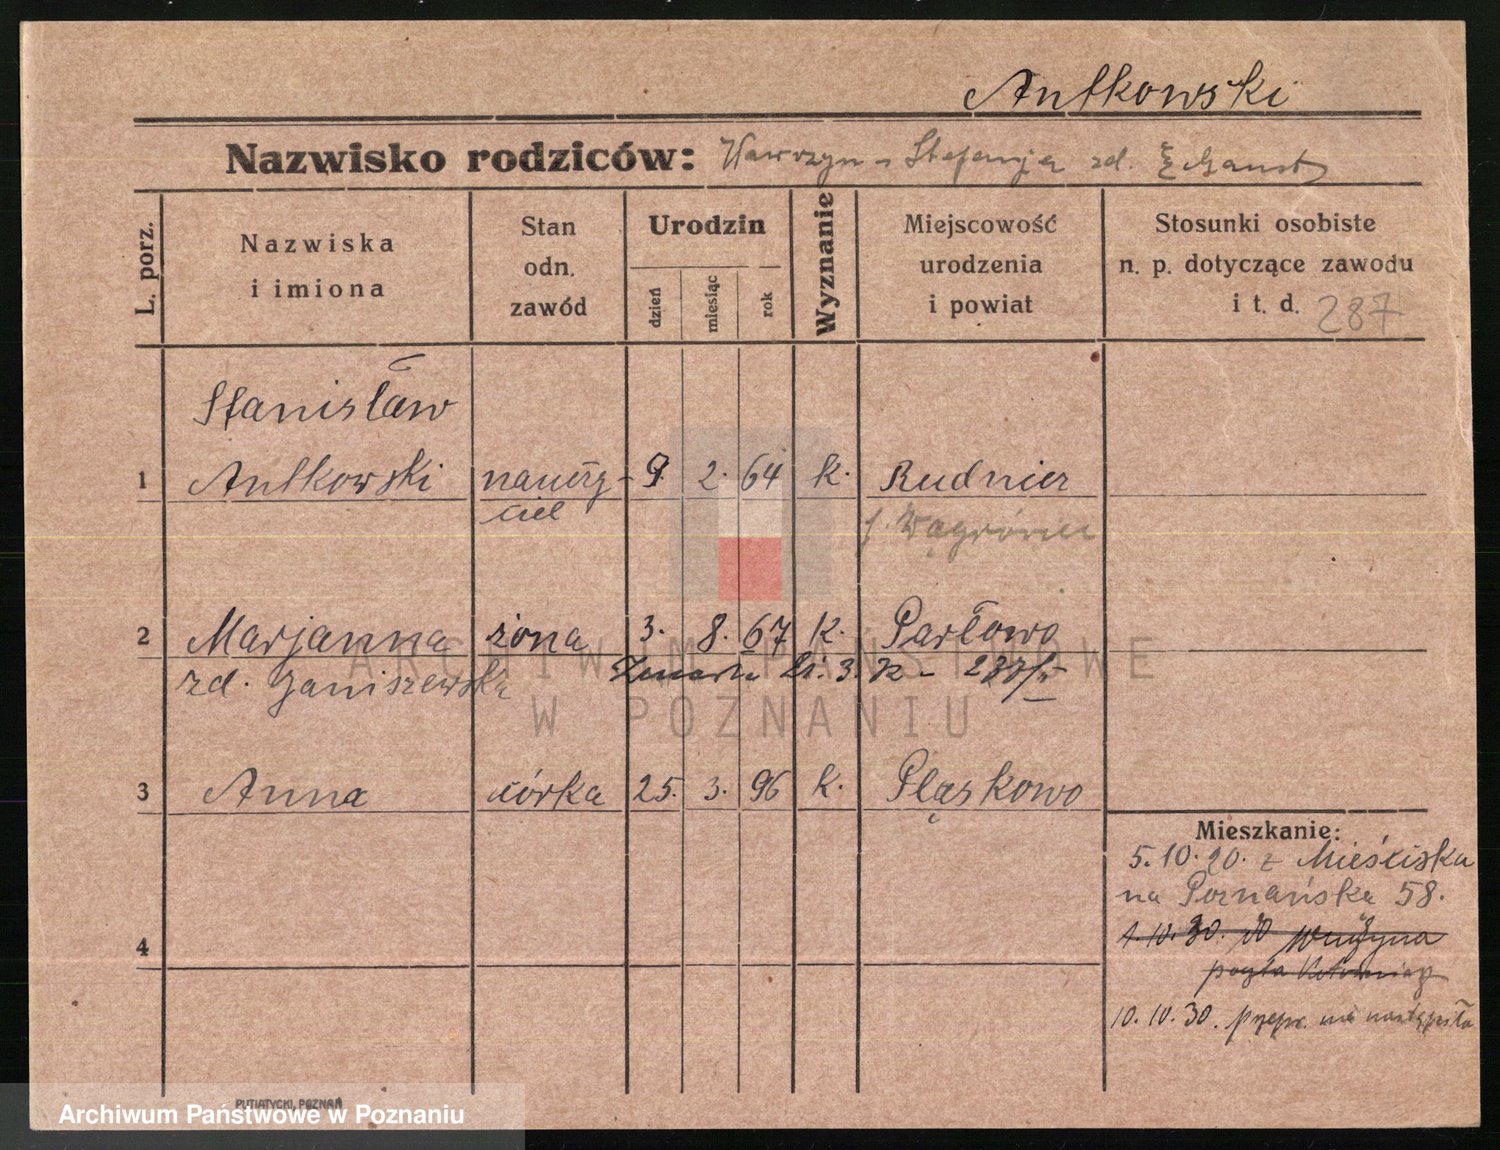 Antkowski
Nazwisko rodziców: Wawrzyn - Stefanja zd.
L. porz.
Nazwiska
i imiona
Stan
odn.
zawód
Urodzin
dzień
miesiąc
rok
Wyznanie
Miejscowość
urodzenia
i powiat
Stosunki osobiste
n. p. dotyczące zawodu
i t. d. 287
Stanisław
1 Antkowski nauczy- 9. 2. 64 k. Rudnicz
ciel
Wągrówiec
2 Marjanna żona 3. 8. 67 k. Parłowo
zd. Janiszewska
3 Anna córka 25. 3. 96 k. Pląskowo
4
Mieszkanie:
5.10.20. z Mieściska
na Poznańska 58.
1.10.30. do
poczta
10.10.30. przepr. nie nastąpiła
PUTIATYCKI, POZNAŃ
ARCHIWUM PAŃSTWOWE
W POZNANIU
Archiwum Państwowe w Poznaniu